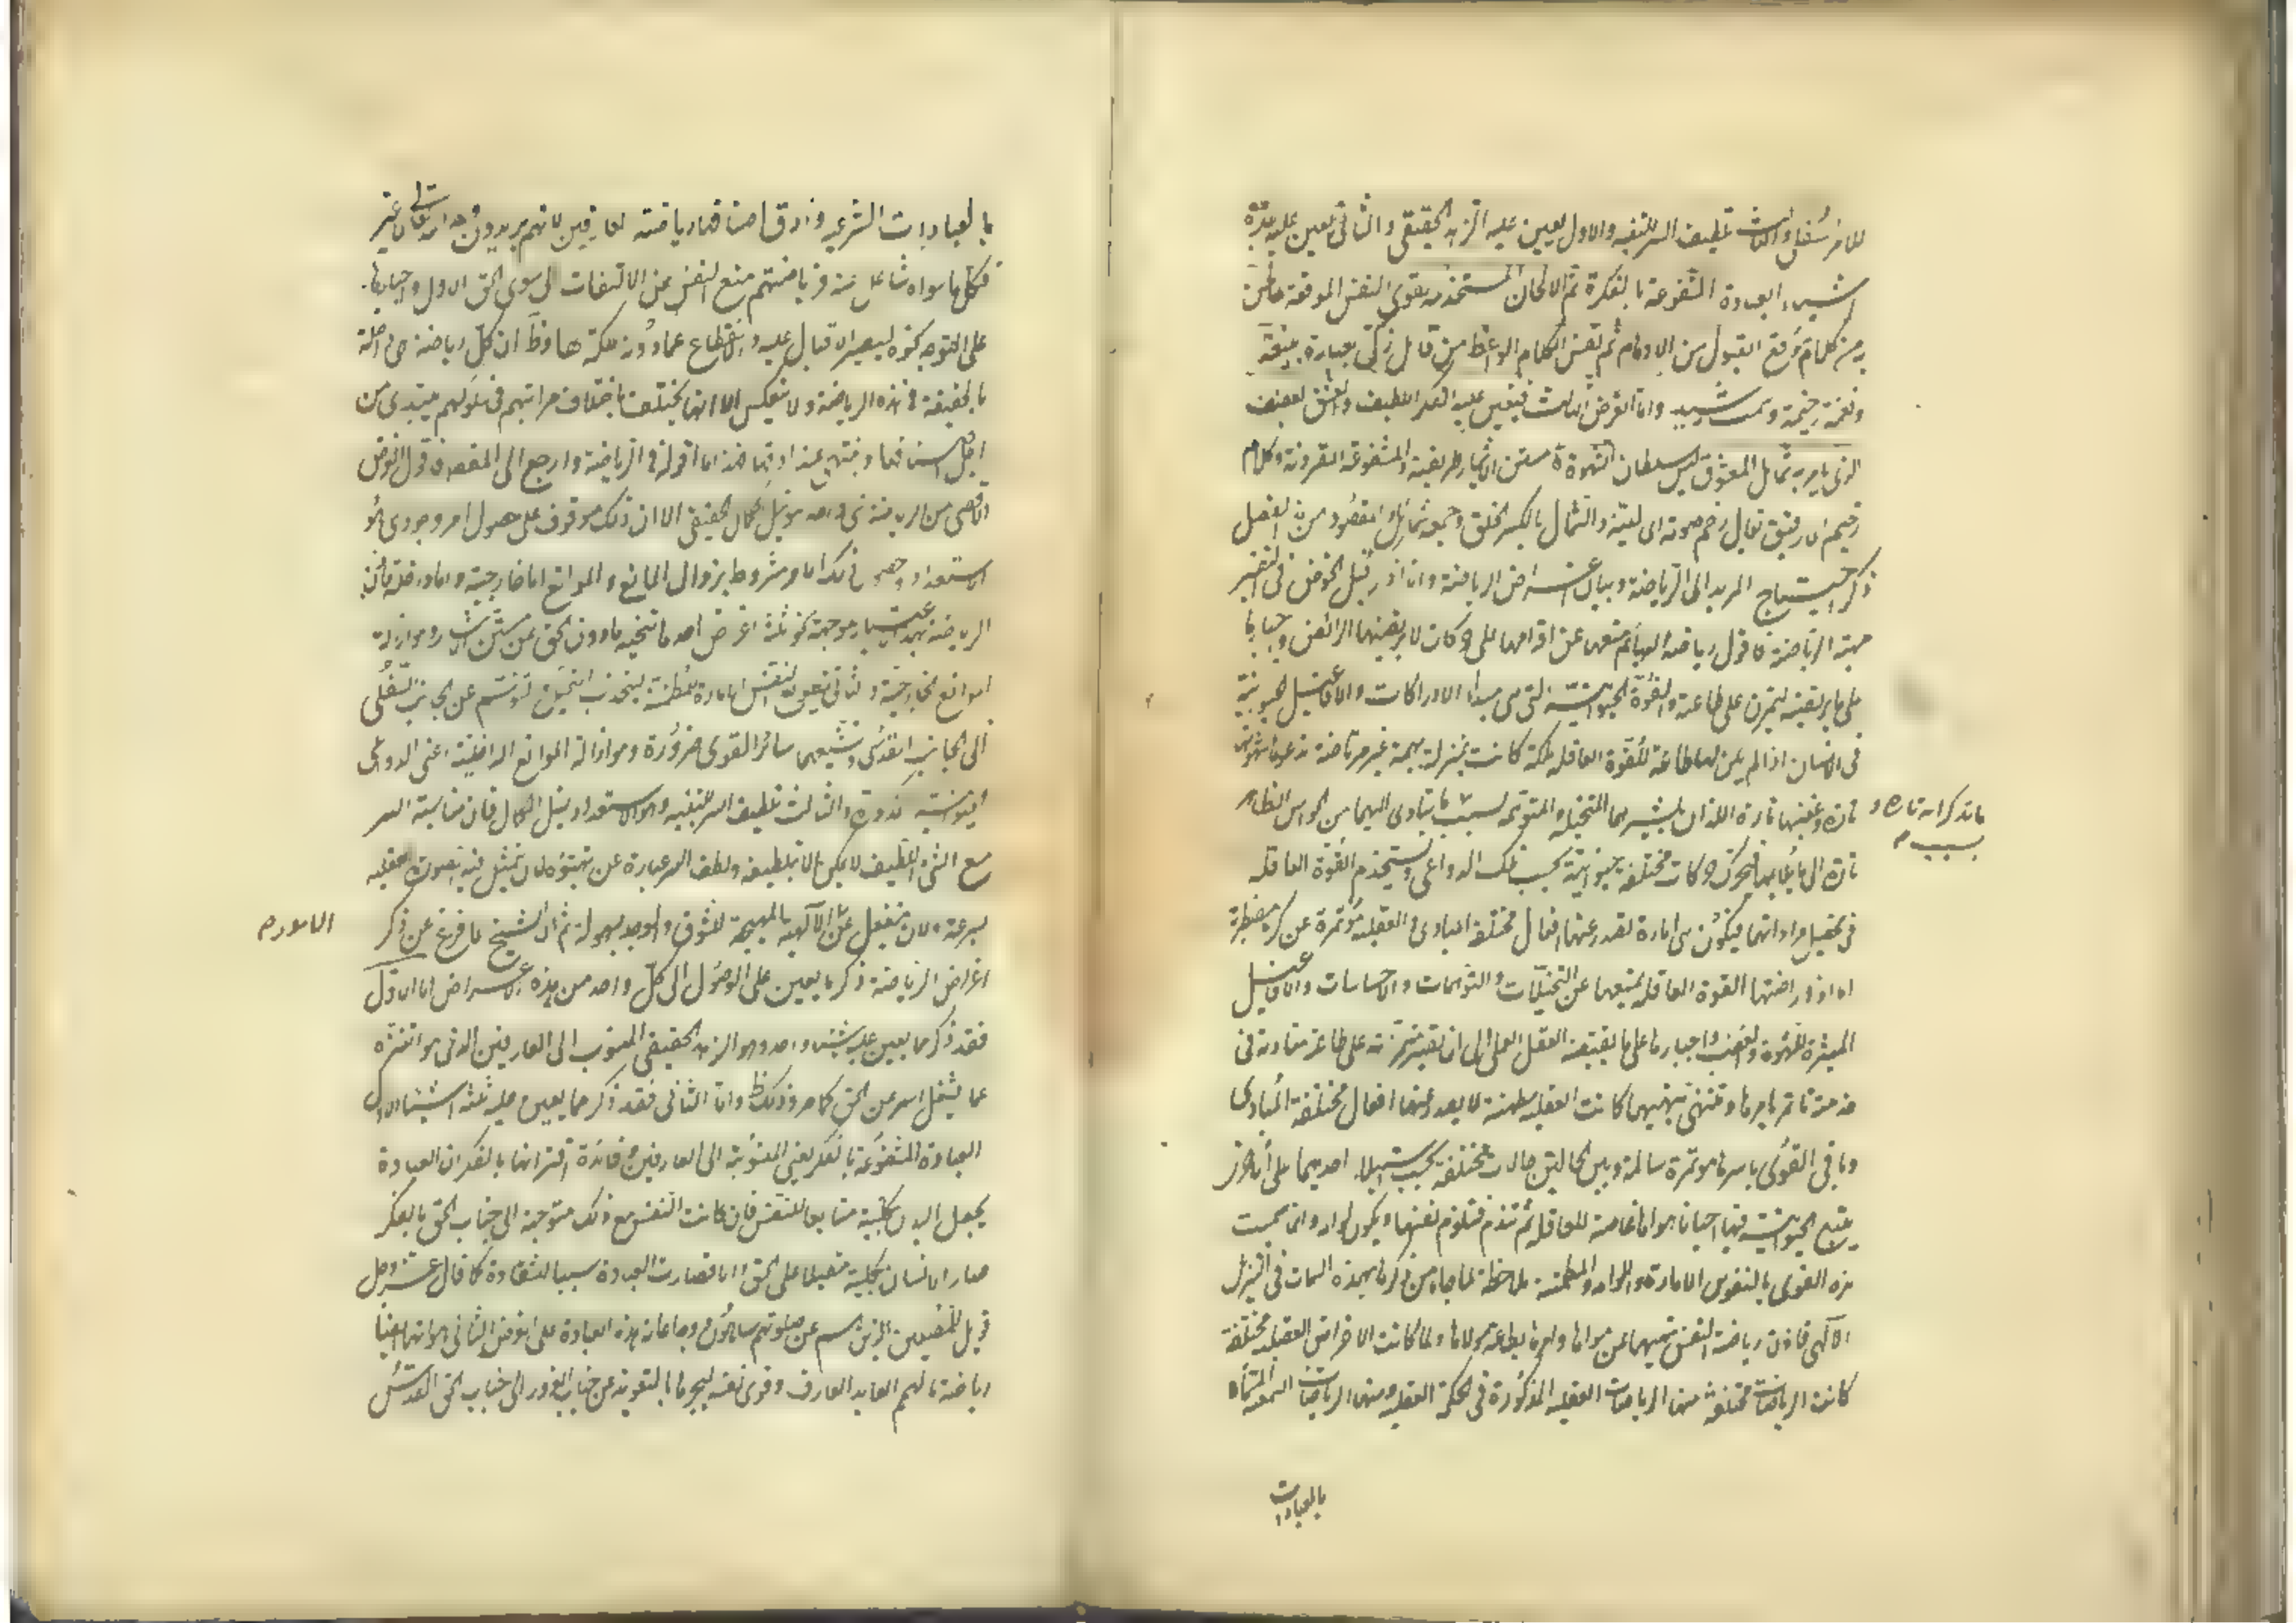 للامر شفلا والثالث تلطيف السر للتنبه والاول يعين عليه الزهد الحقيقى والثانى يعين عليه عدة
اشياء العبادة المشفوعة بالفكرة ثم الالحان المستخدمة لقوى النفس الموقعة لما لحن
به من كلام موقع القبول من الاوهام ثم نفس الكلام الواعظ من قائل زكى بعبارة بليغة
ونغمة رخيمة وسمت رشيد واما الغرض الثالث فيعين عليه الفكر اللطيف والعشق العفيف
الذى يامر به شمائل المعشوق ليس سلطان الشهوة مستن الايثار طريقته والمشفوعة المقرونة وكلام
رخيم اى رقيق يقال رخم صوته اى لينه والشمال بالكسر الخلق وجمعه شمائل والمقصود من هذا الفصل
ذكر احتياج المريد الى الرياضة وبيان اغراض الرياضة وانا اذكر قبل الخوض فى التفسير
مهية الرياضة فاقول رياضة البهائم منعها عن اقدامها على حركات لا يرتضيها الرائض واجبارها
على ما يرتضيه لتتمرن على طاعته والقوة الحيوانية التى هى مبدأ الادراكات والافاعيل الحيوانية
فى الانسان اذا لم يكن لها طاعة للقوة العاقلة ملكة كانت بمنزلة بهيمة غير مرتاضة تدعوها شهوتها
تارة وغضبها تارة اللذان يثيرهما المتخيلة والمتوهمة بسبب ما يتادى اليهما من الحواس الظاهرة
ما تتذكرانه تارة و
بسبب م
تارة الى ما يلائمها فتتحرك حركات مختلفة حيوانية بحسب تلك الدواعى وتستخدم القوة العاقلة
فى تحصيل مراداتها فيكون هى امارة تصدر عنها افعال مختلفة المبادى والعقلية مؤتمرة عن كره مضطربة
اما اذا راضتها القوة العاقلة بمنعها عن التخيلات والتوهمات والاحساسات والافاعيل
المثيرة للشهوة والغضب واجبارها على ما يقتضيه العقل العملى الى ان تصير متمرنة على طاعته متادبة فى
خدمته تاتمر بامرها وتنتهى بنهيها كانت العقلية مطمئنة لا يصدر عنها افعال مختلفة المبادى
وباقى القوى باسرها مؤتمرة سالمة وبين الحالتين حالات مختلفة بحسب استيلاء احديهما على الاخرى
يتبع الحيوانية فيها احيانا هواها عاصية للعاقلة ثم تندم فتلوم نفسها ويكون لوامة وانما سميت
هذه القوى بالنفوس الامارة واللوامة والمطمئنة ملاحظة لما جاء من ذكرها بهذه السمات فى التنزيل
الالهى فاذن رياضة النفس نهيها عن هواها وامرها بطاعة مولاها ولما كانت الاغراض العقلية مختلفة
كانت الرياضات مختلفة منها الرياضات العقلية المذكورة فى الحكمة العملية ومنها الرياضات السمعية المسماة
بالعبادات
بالعبادات الشرعية وادق اصنافها رياضة العارفين لانهم يريدون وجه الله تعالى لا غير
فكل ما سواه شاغل عنه فرياضتهم منع النفس عن الالتفات الى سوى الحق الاول واجبارها
على التوجه نحوه ليصير الاقبال عليه والانقطاع عما دونه ملكة لها وظ ان كل رياضة هى داخلة
بالحقيقة فى هذه الرياضة ولا ينعكس الا انها يختلف باختلاف مراتبهم فى سلوكهم يبتدى من
اجل اصنافها وينتهى عند ادقها هذا ما اقوله فى الرياضة وارجع الى المقصود فاقول الغرض
الاقصى من الرياضة شىء واحد هو نيل الكمال الحقيقى الا ان ذلك موقوف على حصول امر وجودى هو
الاستعداد وحصول ذلك الامر مشروط بزوال المانع والموانع اما خارجية واما داخلة فاذن
الرياضة بهذا الاعتبار موجهة نحو ثلثة اغراض احدها تنحية ما دون الحق عن مستن الايثار وهو ازالة
الموانع الخارجية والثانى تطويع النفس الامارة للمطمئنة لينجذب التخيل والتوهم عن الجانب السفلى
الى الجانب القدسى ويشيعهما سائر القوى ضرورة وهو ازالة الموانع الداخلية اعنى الدواعى
الحيوانية المذكورة والثالث تلطيف السر للتنبه وهو الاستعداد لنيل الكمال فان مناسبة السر
مع الشىء اللطيف لا يمكن الا بتلطيفه ولطف السر عبارة عن تهيئه لان تمثيل فيه الصور العقلية
بسرعة ولان ينفعل عن الالهية المهيجة للشوق والوجد بسهولة ثم ان الشيخ لما فرغ عن ذكر
الامور م
اغراض الرياضة ذكر ما يعين على الوصول الى كل واحد من هذه الاغراض اما الاول
فقد ذكر مما يعين عليه شيئا واحدا وهو الزهد الحقيقى المنسوب الى العارفين الذى هو التنزه
عما يشغل السر عن الحق كما مر وذلك ظ واما الثانى فقد ذكر مما يعين عليه ثلثة اشياء الاول
العبادة المشفوعة بالفكر يعنى المنسوبة الى العارفين وفائدة اقترانها بالفكر ان العبادة
يجعل البدن بكلية متابعا للنفس فان كانت النفس مع ذلك متوجهة الى جناب الحق بالفكر
صار الانسان بكلية مقبلا على الحق والا فصارت العبادة سببا للشقاوة كما قال عز وجل
فويل للمصلين الذين هم عن صلوتهم ساهون ووجه اعانة هذه العبادة على الغرض الثانى هو انها ايضا
رياضة ما لهمم العابد العارف وقوى نفسه ليجرها بالتعويد عن جناب الغرور الى جناب الحق القدس